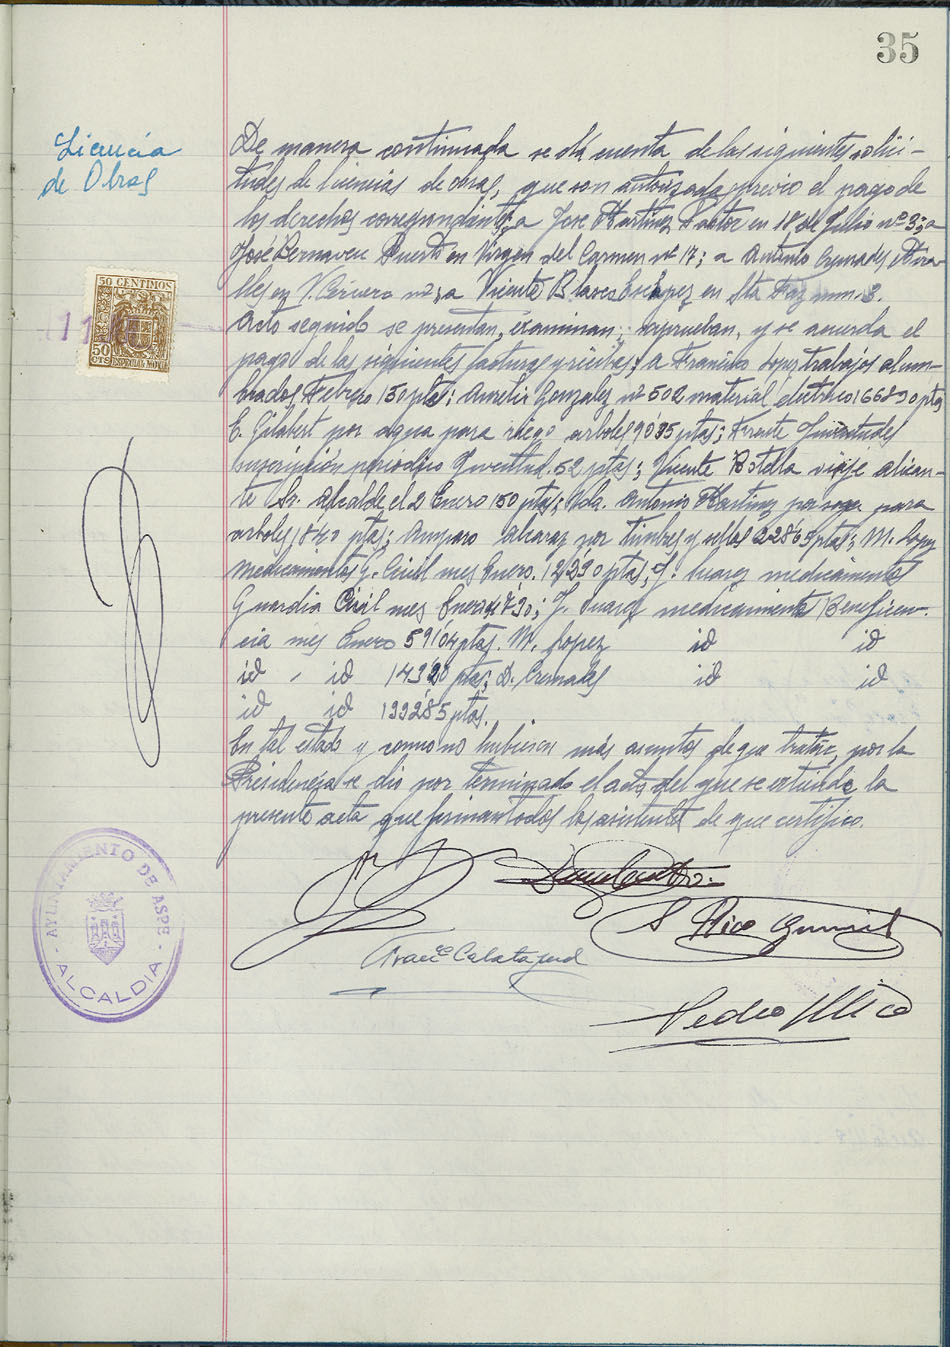 35
Licencia
de Obras
De manera continuada se dá cuenta de las siguientes solici-
tudes de licencias de obras, que son autorizadas previo el pago de
los derechos correspondientes; a José Martinez Pastor en 18 de Julio nº 3; a
José Bernaveu Puerto en Virgen del Carmen nº 17; a Antonio Cremades Mira-
lles en V. Cervero nº; a Vicente Blasco en Sta Faz num. 8.
Acto seguido se presentan, examinan, aprueban, y se acuerda el
pago de las siguientes facturas y recibos; a Francisco Lopez trabajos alum-
brados Febrero 150 ptas; Gonzalez nº 502 material electrico 1668'90 ptas
E. Gilabert por agua para riego arboles 90'85 ptas; Frente Juventudes
suscripción periodico Juventud 52 ptas; Vicente Botella viaje alican-
te Sr. Alcalde el 2 Enero 150 ptas; Vda. Antonio Martinez por para
arboles 18'40 ptas; Amparo Alcaraz por timbres y sellos 228'65 ptas; M. Lopez
medicamentos G. Civil mes Enero. 122'90 ptas; J. Suarez medicamentos
Guardia Civil mes Enero 47'90; J. Suarez medicamentos Beneficen-
cia mes Enero 591'04 ptas. M. Lopez id id
id - id 1493'20 ptas; D. Cremades id id
id id 1992'85 ptas.
En tal estado y como no hubieran más asuntos de que tratar, por la
Presidencia se dio por terminado el acto del que se extiende la
presente acta que firman todos los asistentes de que certifico.
50 CENTIMOS
50
CTS
ESPECIAL MOVIL
11
AYUNTAMIENTO DE ASPE
ALCALDIA
S Rico
Franco Calatayud
Pedro Mico